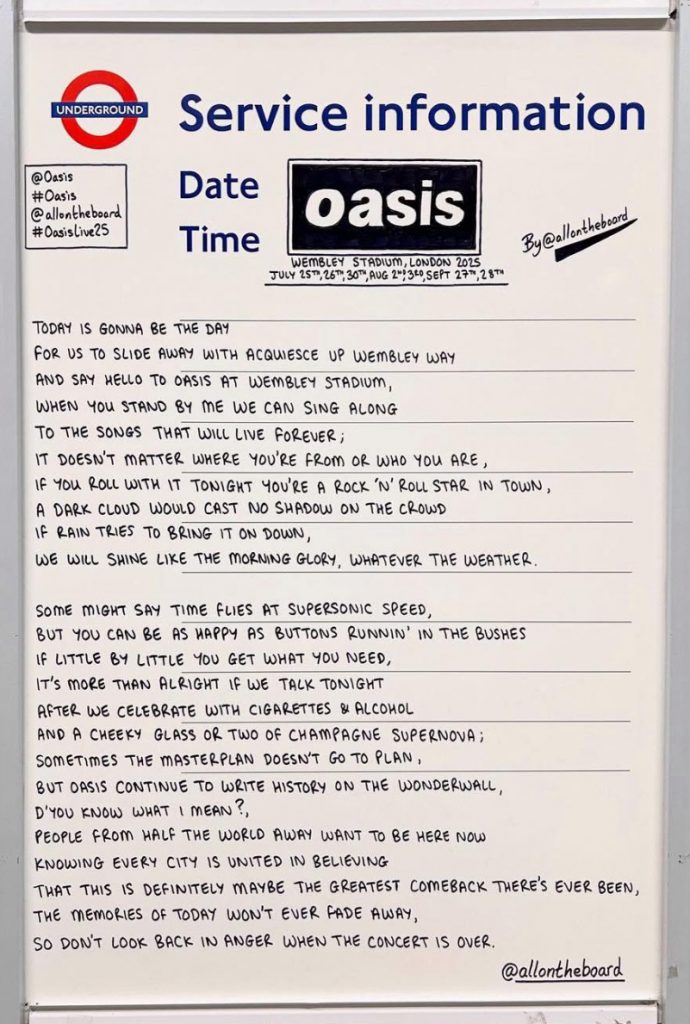 UNDERGROUND
Service information
@Oasis
#Oasis
@allontheboard
#OasisLive25
Date
Time
oasis
By@allontheboard
WEMBLEY STADIUM, LONDON 2025
JULY 25TH, 26TH, 30TH, AUG 2ND, 3RD, SEPT 27TH, 28TH
TODAY IS GONNA BE THE DAY
FOR US TO SLIDE AWAY WITH ACQUIESCE UP WEMBLEY WAY
AND SAY HELLO TO OASIS AT WEMBLEY STADIUM,
WHEN YOU STAND BY ME WE CAN SING ALONG
TO THE SONGS THAT WILL LIVE FOREVER;
IT DOESN'T MATTER WHERE YOU'RE FROM OR WHO YOU ARE,
IF YOU ROLL WITH IT TONIGHT YOU'RE A ROCK 'N' ROLL STAR IN TOWN,
A DARK CLOUD WOULD CAST NO SHADOW ON THE CROWD
IF RAIN TRIES TO BRING IT ON DOWN,
WE WILL SHINE LIKE THE MORNING GLORY, WHATEVER THE WEATHER.
SOME MIGHT SAY TIME FLIES AT SUPERSONIC SPEED,
BUT YOU CAN BE AS HAPPY AS BUTTONS RUNNIN' IN THE BUSHES
IF LITTLE BY LITTLE YOU GET WHAT YOU NEED,
IT'S MORE THAN ALRIGHT IF WE TALK TONIGHT
AFTER WE CELEBRATE WITH CIGARETTES & ALCOHOL
AND A CHEEKY GLASS OR TWO OF CHAMPAGNE SUPERNOVA;
SOMETIMES THE MASTERPLAN DOESN'T GO TO PLAN,
BUT OASIS CONTINUE TO WRITE HISTORY ON THE WONDERWALL,
D'YOU KNOW WHAT I MEAN?,
PEOPLE FROM HALF THE WORLD AWAY WANT TO BE HERE NOW
KNOWING EVERY CITY IS UNITED IN BELIEVING
THAT THIS IS DEFINITELY MAYBE THE GREATEST COMEBACK THERE'S EVER BEEN,
THE MEMORIES OF TODAY WON'T EVER FADE AWAY,
SO DON'T LOOK BACK IN ANGER WHEN THE CONCERT IS OVER.
@allontheboard